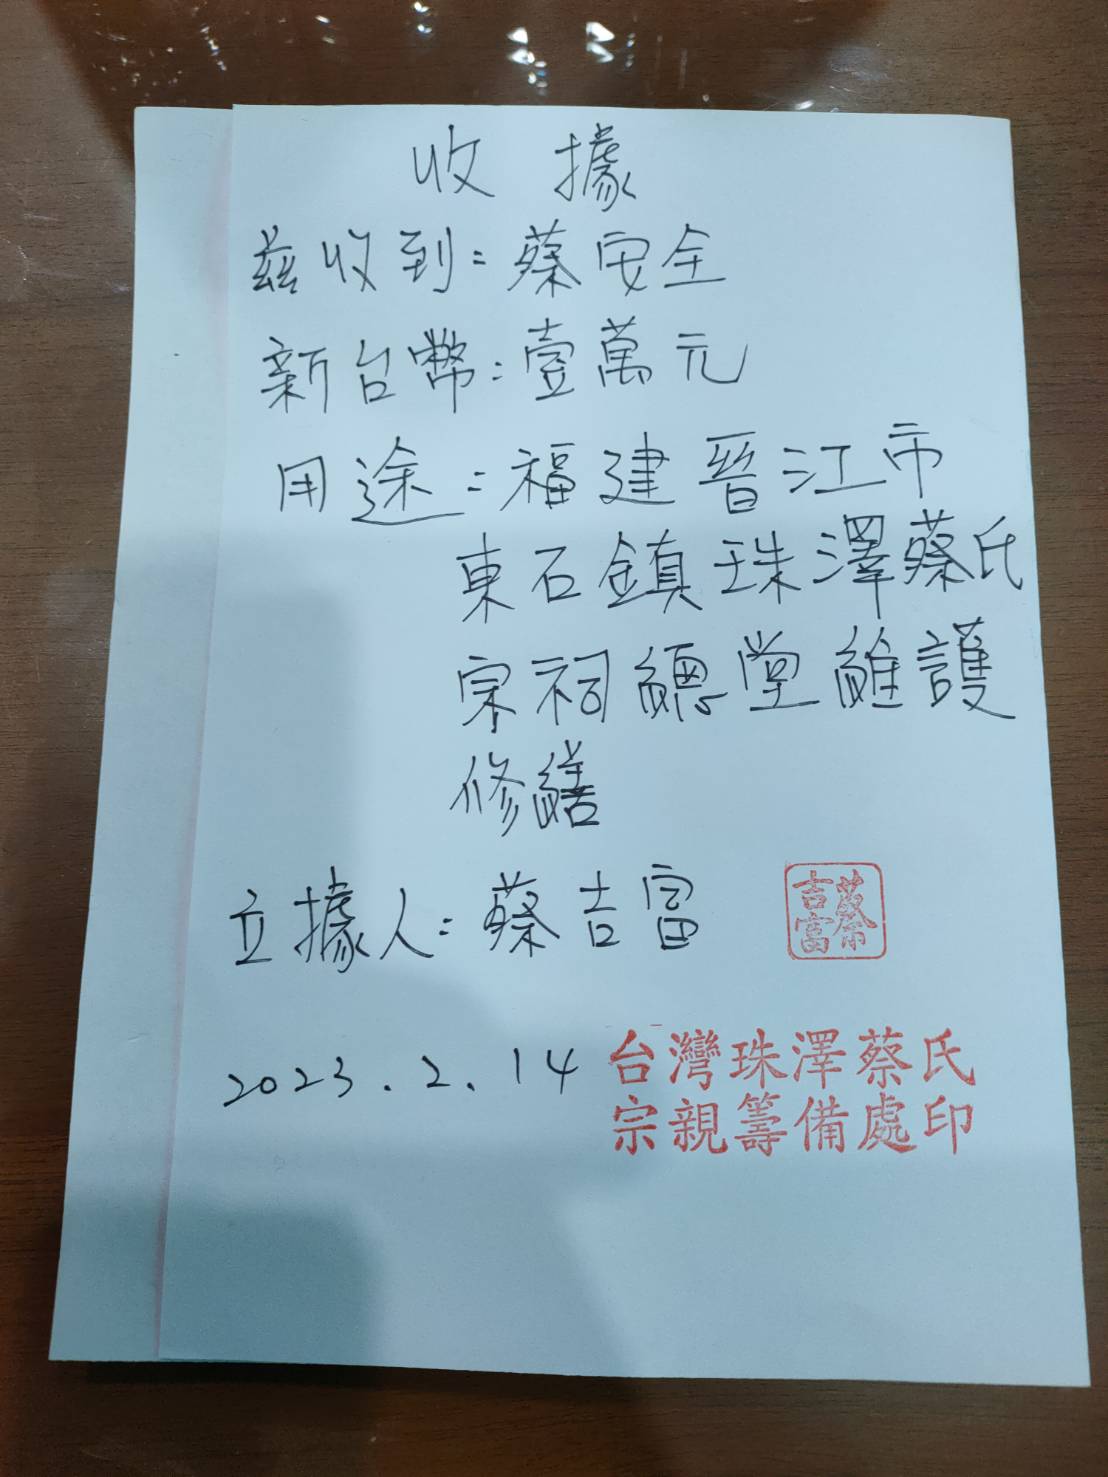 收據
茲收到：蔡安全
新台幣：壹萬元
用途：福建晉江市
東石鎮珠澤蔡氏
宗祠總堂維護
修繕
立據人：蔡吉富
蔡吉富
2023.2.14
台灣珠澤蔡氏
宗親籌備處印